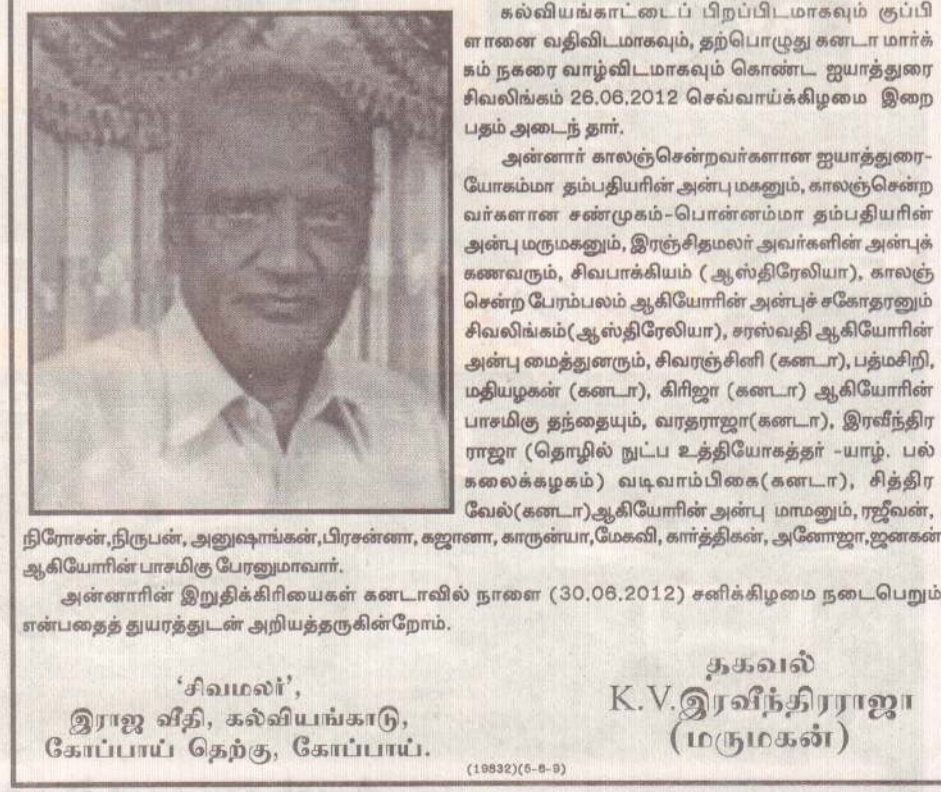 கல்வியங்காட்டைப் பிறப்பிடமாகவும் குப்பி
ளானை வதிவிடமாகவும், தற்பொழுது கனடா மார்க்
கம் நகரை வாழ்விடமாகவும் கொண்ட ஐயாத்துரை
சிவலிங்கம் 26.06.2012 செவ்வாய்க்கிழமை இறை
பதம் அடைந் தார்.
அன்னார் காலஞ்சென்றவர்களான ஐயாத்துரை-
யோகம்மா தம்பதியரின் அன்பு மகனும், காலஞ்சென்ற
வர்களான சண்முகம்-பொன்னம்மா தம்பதியரின்
அன்பு மருமகனும், இரஞ்சிதமலர் அவர்களின் அன்புக்
கணவரும், சிவபாக்கியம் (ஆஸ்திரேலியா), காலஞ்
சென்ற பேரம்பலம் ஆகியோரின் அன்புச் சகோதரனும்
சிவலிங்கம்(ஆஸ்திரேலியா), சரஸ்வதி ஆகியோரின்
அன்பு மைத்துனரும், சிவரஞ்சினி (கனடா), பத்மசிறி,
மதியழகன் (கனடா), கிரிஜா (கனடா) ஆகியோரின்
பாசமிகு தந்தையும், வரதராஜா(கனடா), இரவீந்திர
ராஜா (தொழில் நுட்ப உத்தியோகத்தர் -யாழ். பல்
கலைக்கழகம்) வடிவாம்பிகை(கனடா), சித்திர
வேல்(கனடா)ஆகியோரின் அன்பு மாமனும், ரஜீவன்,
நிரோசன்,நிருபன், அனுஷாங்கன்,பிரசன்னா, கஜானா, காருன்யா,மேகவி, கார்த்திகன், அனோஜா,ஜனகன்
ஆகியோரின் பாசமிகு பேரனுமாவார்.
அன்னாரின் இறுதிக்கிரியைகள் கனடாவில் நாளை (30.06.2012) சனிக்கிழமை நடைபெறும்
என்பதைத் துயரத்துடன் அறியத்தருகின்றோம்.
‘சிவமலர்’,
இராஜ வீதி, கல்வியங்காடு,
கோப்பாய் தெற்கு, கோப்பாய்.
தகவல்
K.V.இரவீந்திரராஜா
(மருமகன்)
(19832)(5-6-9)